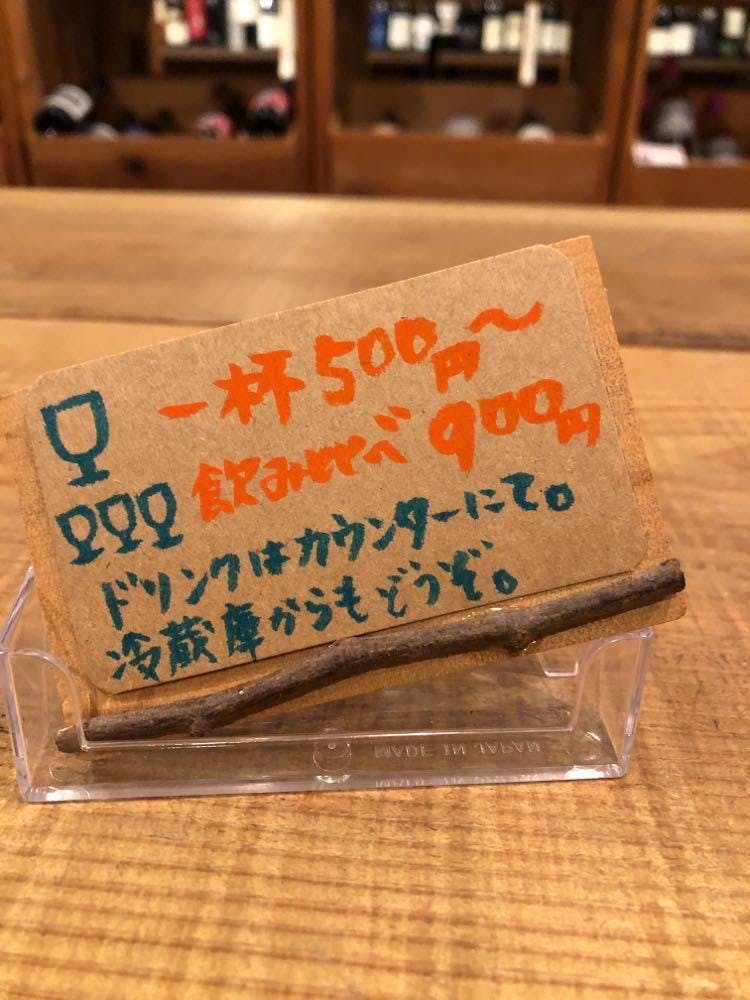 一杯500円〜
飲み比べ 900円
ドリンクはカウンターにて。
冷蔵庫からもどうぞ。
MADE IN JAPAN